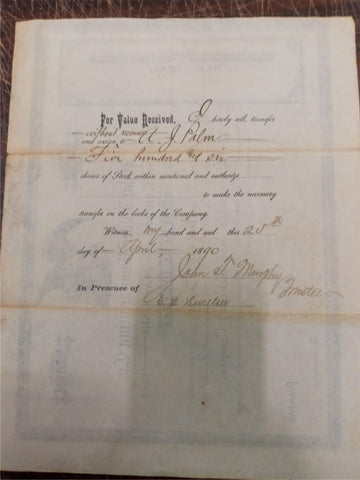 For Value Received, I hereby sell, transfer
without recourse
and assign to A. J. Palm
Five hundred & six
shares of Stock within mentioned and authorize
to make the necessary
transfer on the books of the Company.
Witness my hand and seal this 25th
day of April, 1890
John T. Murphy
Trustee
In Presence of